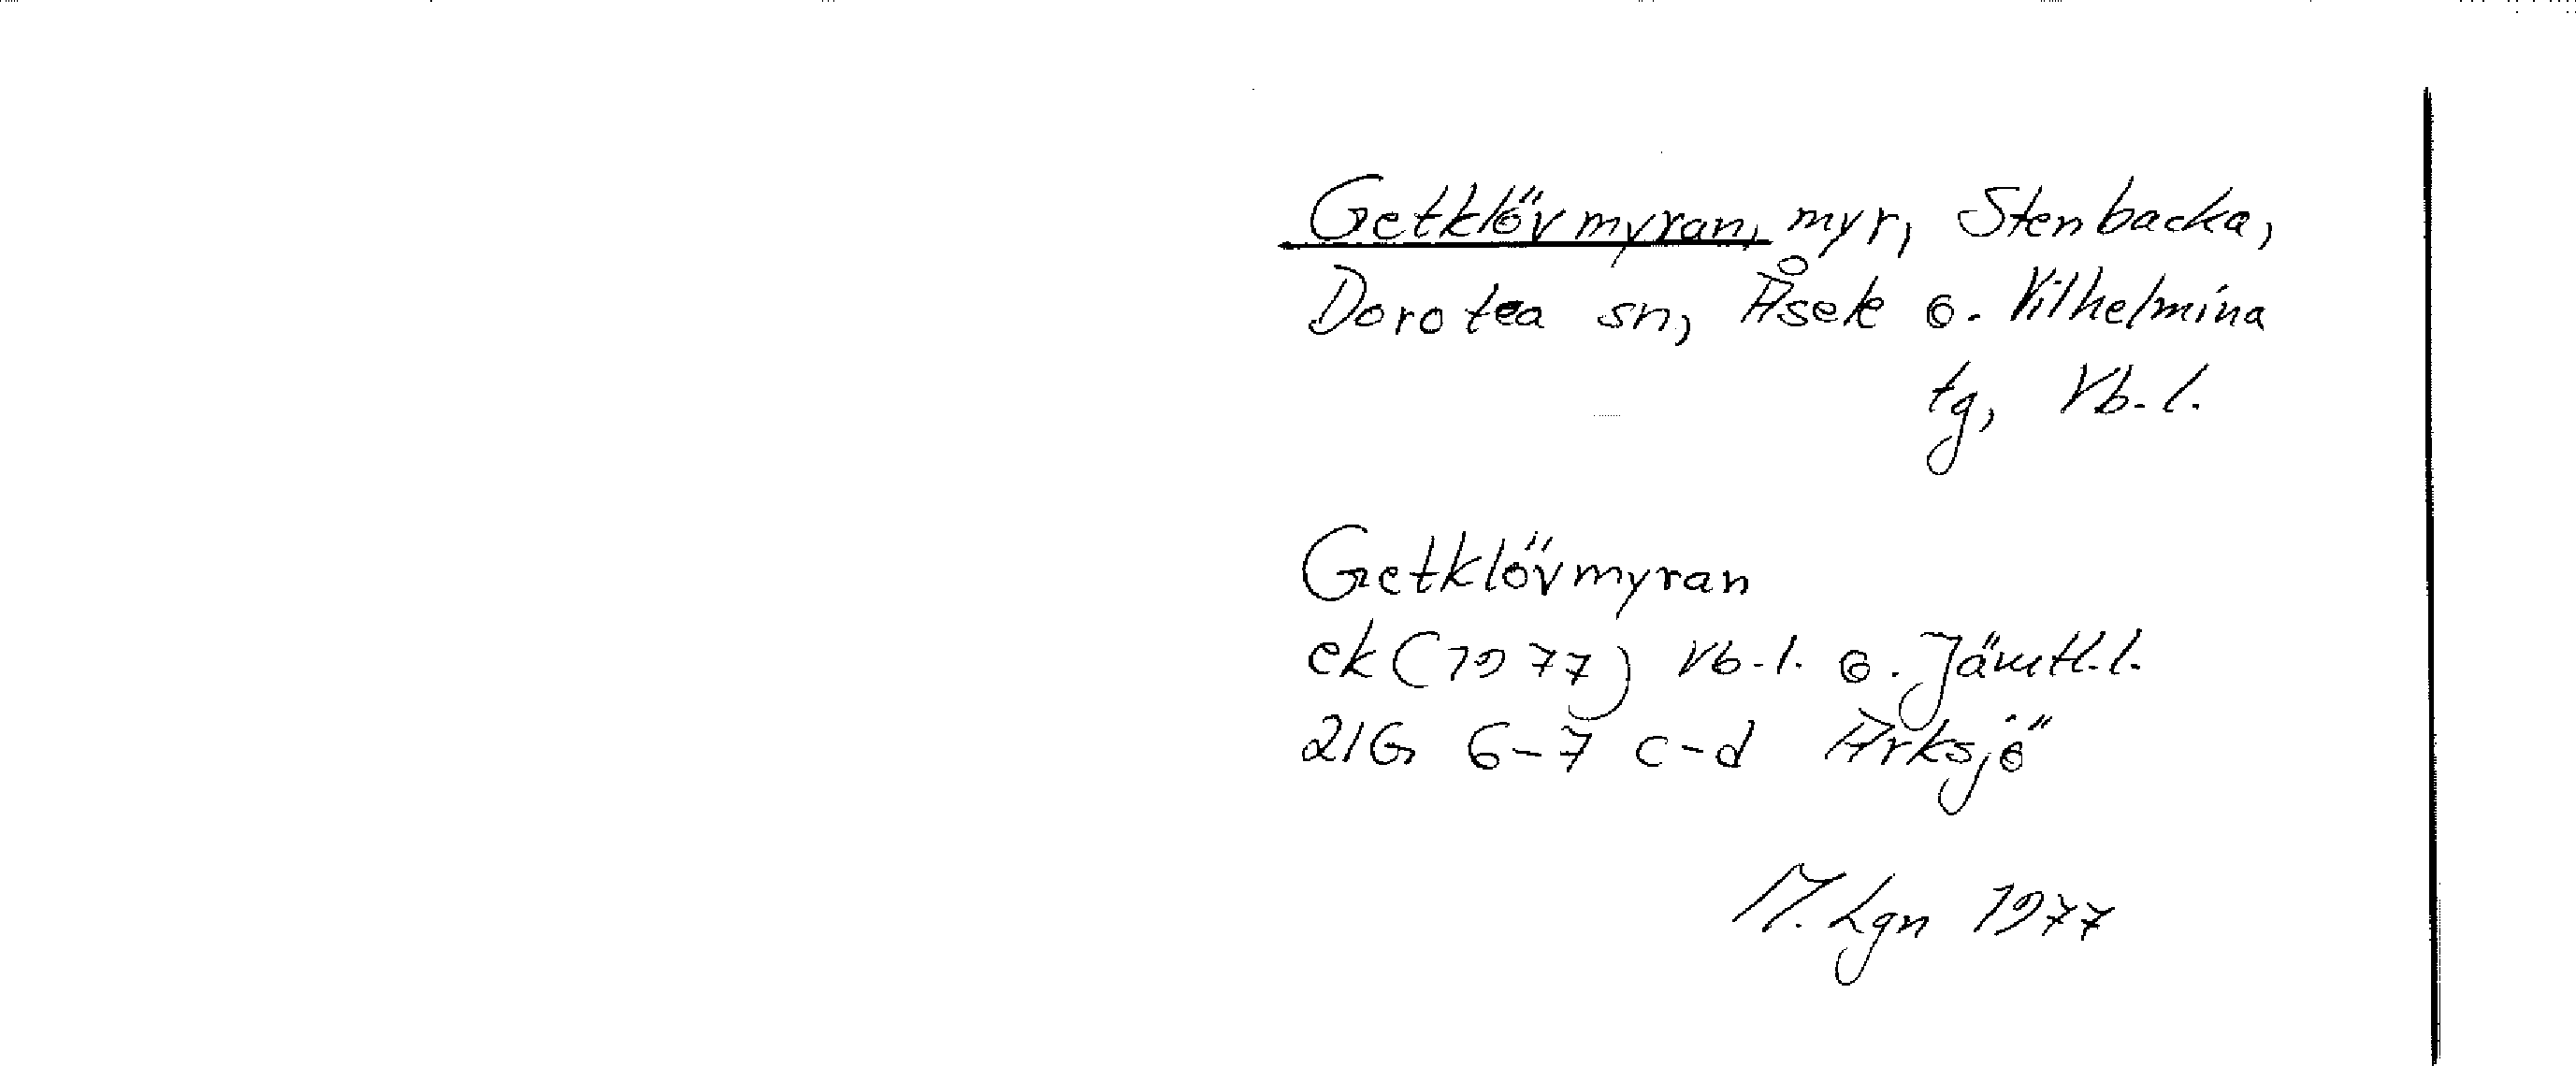 Getklövmyran, myr, Stenbacka,
Dorotea sn, Åsele o. Vilhelmina
tg, Vb. l.
Getklövmyran
ek (1977) Vb. l. o. Jämtl. l.
21G 6-7 c-d Arksjö
M. Lgn 1977